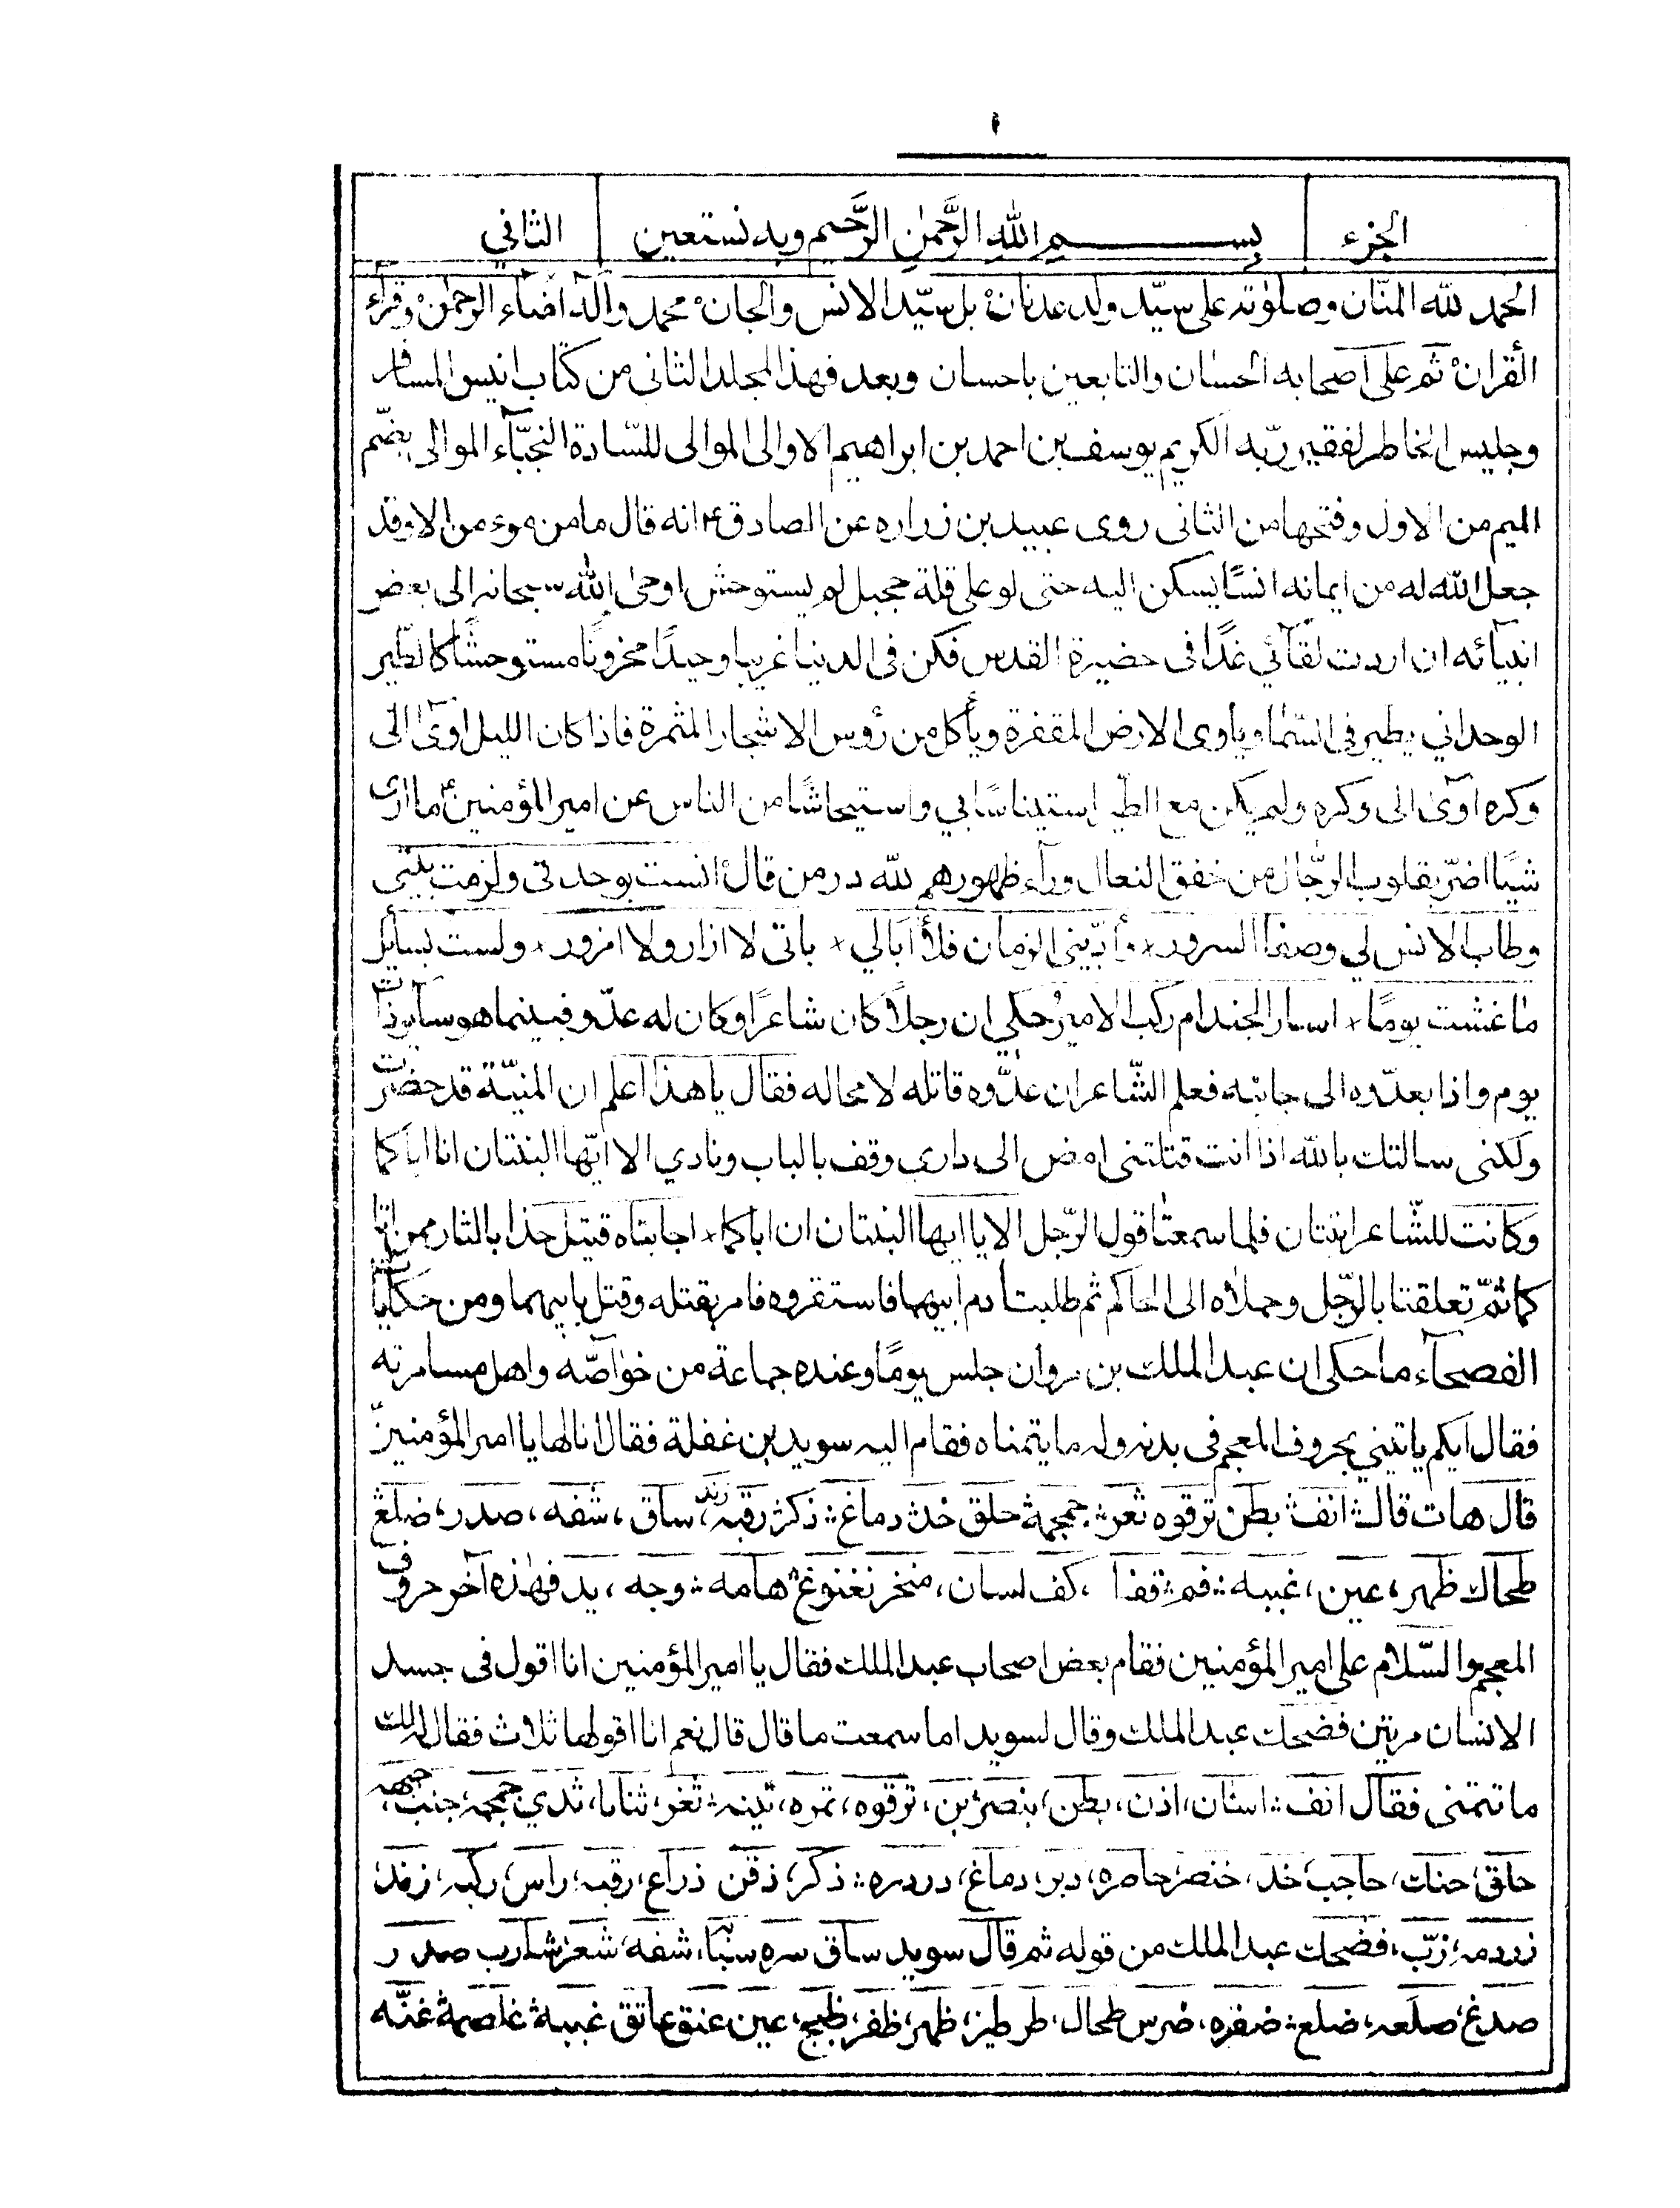 ١
الجزء بسم الله الرَّحمٰنِ الرَّحيم وبه نستعين الثاني
الحمد لله المنّان وصلوٰته على سيّد ولد عدنان بل سيّد الانس والجان محمد وآله امناء الرحمٰن وقرآء
القران ثم على اصحابه الحسان والتابعين باحسان وبعد فهذا المجلد الثانى من كتاب انيس المسافر
وجليس الخاطر لفقير ربّه الكريم يوسف بن احمد بن ابراهيم الاوالى الموالى للسّادة النجبآء الموالى بضّم
الميم من الاول وفتحها من الثانى روى عبيد بن زراره عن الصادق ع انه قال ما من موءمن الا وقد
جعل الله له من ايمانه انسًا يسكن اليه حتى لو على قلة جبل لم يستوحش اوحى الله سبحانه الى بعض
انبيآئه ان اردت لقآئي غدًا فى حضيرة القدس فكن فى الدنيا غريبا وحيدًا محزونًا مستوحشًا كالطّير
الوحداني يطير فى السّما وياوى الارض المقفرة ويأكل من رؤس الاشجار المثمرة فاذا كان الليل اوى الى
وكره اوى الى وكره ولم يكن مع الطير استيناسًا بي واستيحاشًا من الناس عن امير المؤمنين ع ما ارى
شيًا اضرّ بقلوب الرّجال من خفق النعال ورآء ظهورهم لله در من قال انست بوحدتى ولزمت بيتى
وطاب الانس لي وصفا السرور × وأدّبني الزمان فلا ابالي × بانى لا ازار ولا ازور × ولست بسايل
ما عشت يومًا × اسار الجند ام ركب الامير حكي ان رجلًا كان شاعرًا وكان له عدّو فبينما هو ساير ذات
يوم واذا بعدّوه الى جانبه فعلم الشّاعر ان عدّوه قاتله لا محاله فقال يا هذا اعلم ان المنيّة قد حضرت
ولكنى سالتك بالله اذا انت قتلتنى امض الى داري وقف بالباب ونادي الا ايّها البنتان انّ اباكما
وكانت للشّاعر ابنتان فلما سمعتا قول الرّجل الا يا ايها البنتان ان اباكما × اجابتاه قتيل خذا بالثار ممن اتا
كما ثمّ تعلقتا بالرّجل وحملاه الى الحاكم ثم طلبتا دم ابيهما فاستقروه فامر بقتله وقتل بابيهما ومن حكايات
الفصحآء ما حكى ان عبد الملك بن مروان جلس يومًا وعنده جماعة من خوآصّه واهل مسامرته
فقال ايكم ياتيني بحروف المعجم فى بدنه وله ما يتمناه فقام اليه سويد بن غفلة فقال انا لها يا امير المؤمنين
قال هات قال انف بطن ترقوه ثغر جمجمة حلق خد دماغ ذكر رقبه، زند ساق، شفه، صدر، ضلع
طحال ظهر، عين، غببه فم قفا، كف لسان، منخر نغنوغ هامه وجه، يد فهذه آخر حروف
المعجم والسّلام على امير المؤمنين فقام بعض اصحاب عبد الملك فقال يا امير المؤمنين انا اقول فى جسد
الانسان مرتين فضحك عبد الملك وقال لسويد اما سمعت ما قال قال نعم انا اقولها ثلاث فقال لك
ما تتمنى فقال انف اسنان، اذن، بطن، بنصر بن، ترقوه، تمره، تينه ثغر، ثنايا، ثدي جمجمه، جنب، جبهه
حلق، حنك، حاجب خد، خنصر خاصره، دبر، دماغ، دردره ذكر، ذقن ذراع، رقبه، راس، ركبه، زند
زردمه، زبّ، فضحك عبد الملك من قوله ثم قال سويد ساق سره سبّابه، شفه، شعر شارب صدر
صدغ، صلعه، ضلع ضفره، ضرس طحال، طر طيز، ظهر، ظفر، ظبج، عين عنق عاتق غببة غلصمة غنّه